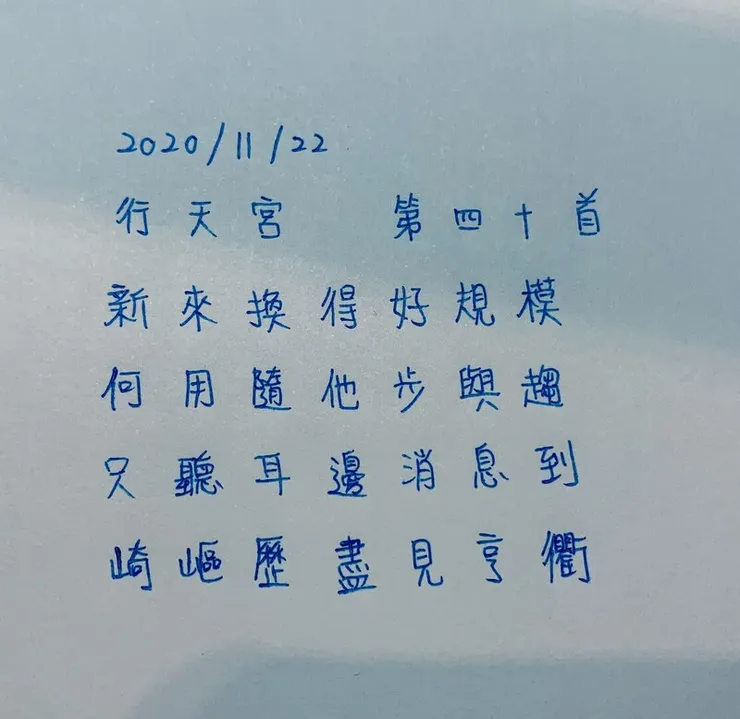 2020/11/22
行天宮 第四十首
新來換得好規模
何用隨他步與趨
只聽耳邊消息到
崎嶇歷盡見亨衢